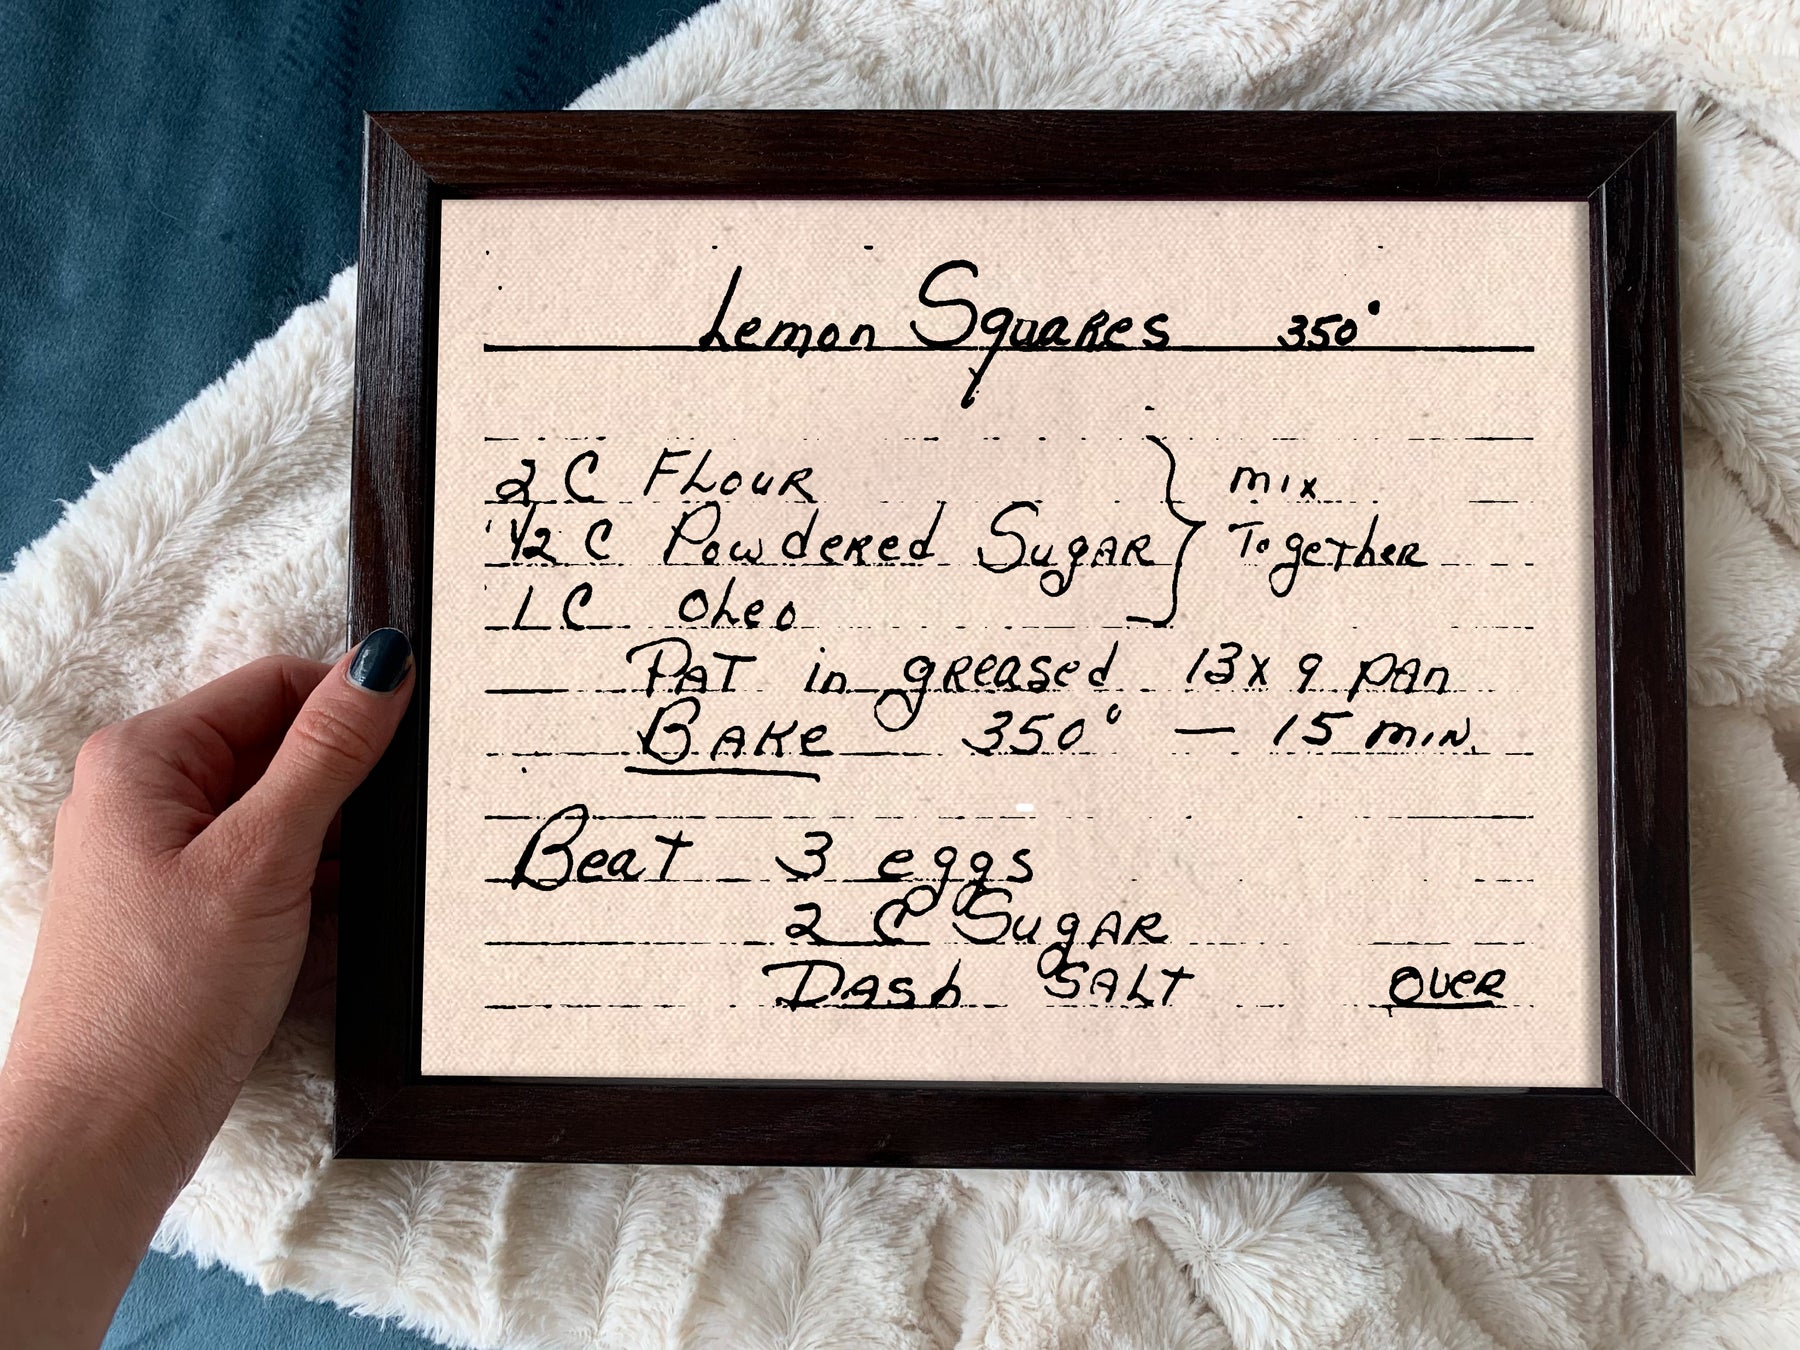 Lemon Squares 350°
2 C Flour
1/2 C Powdered Sugar
1 C Oleo
mix
Together
Pat in greased 13 x 9 pan
Bake 350° — 15 min.
Beat 3 eggs
2 C Sugar
Dash Salt
over